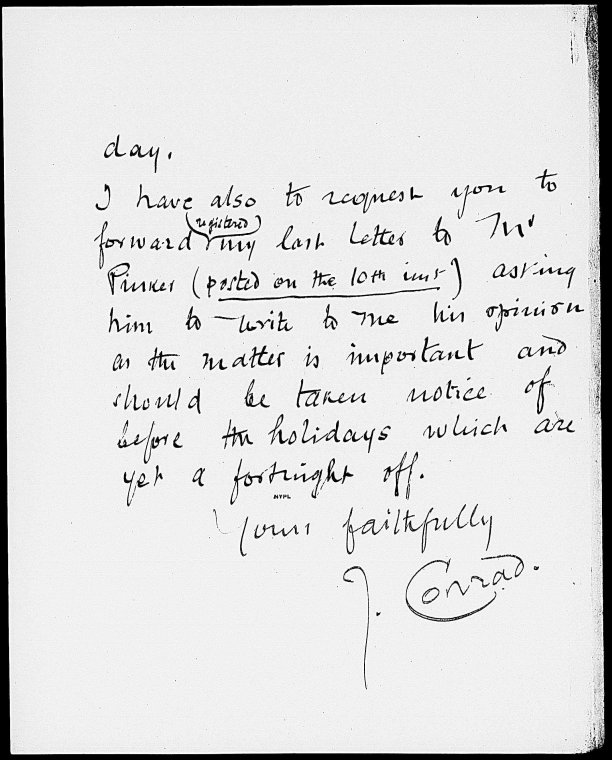 day.
I have also to request you to
(registered)
forward my last letter to Mr
Pinker (posted on the 10th inst) asking
him to write to me his opinion
as the matter is important and
should be taken notice of
before the holidays which are
yet a fortnight off.
NYPL
Yours faithfully
J. Conrad.